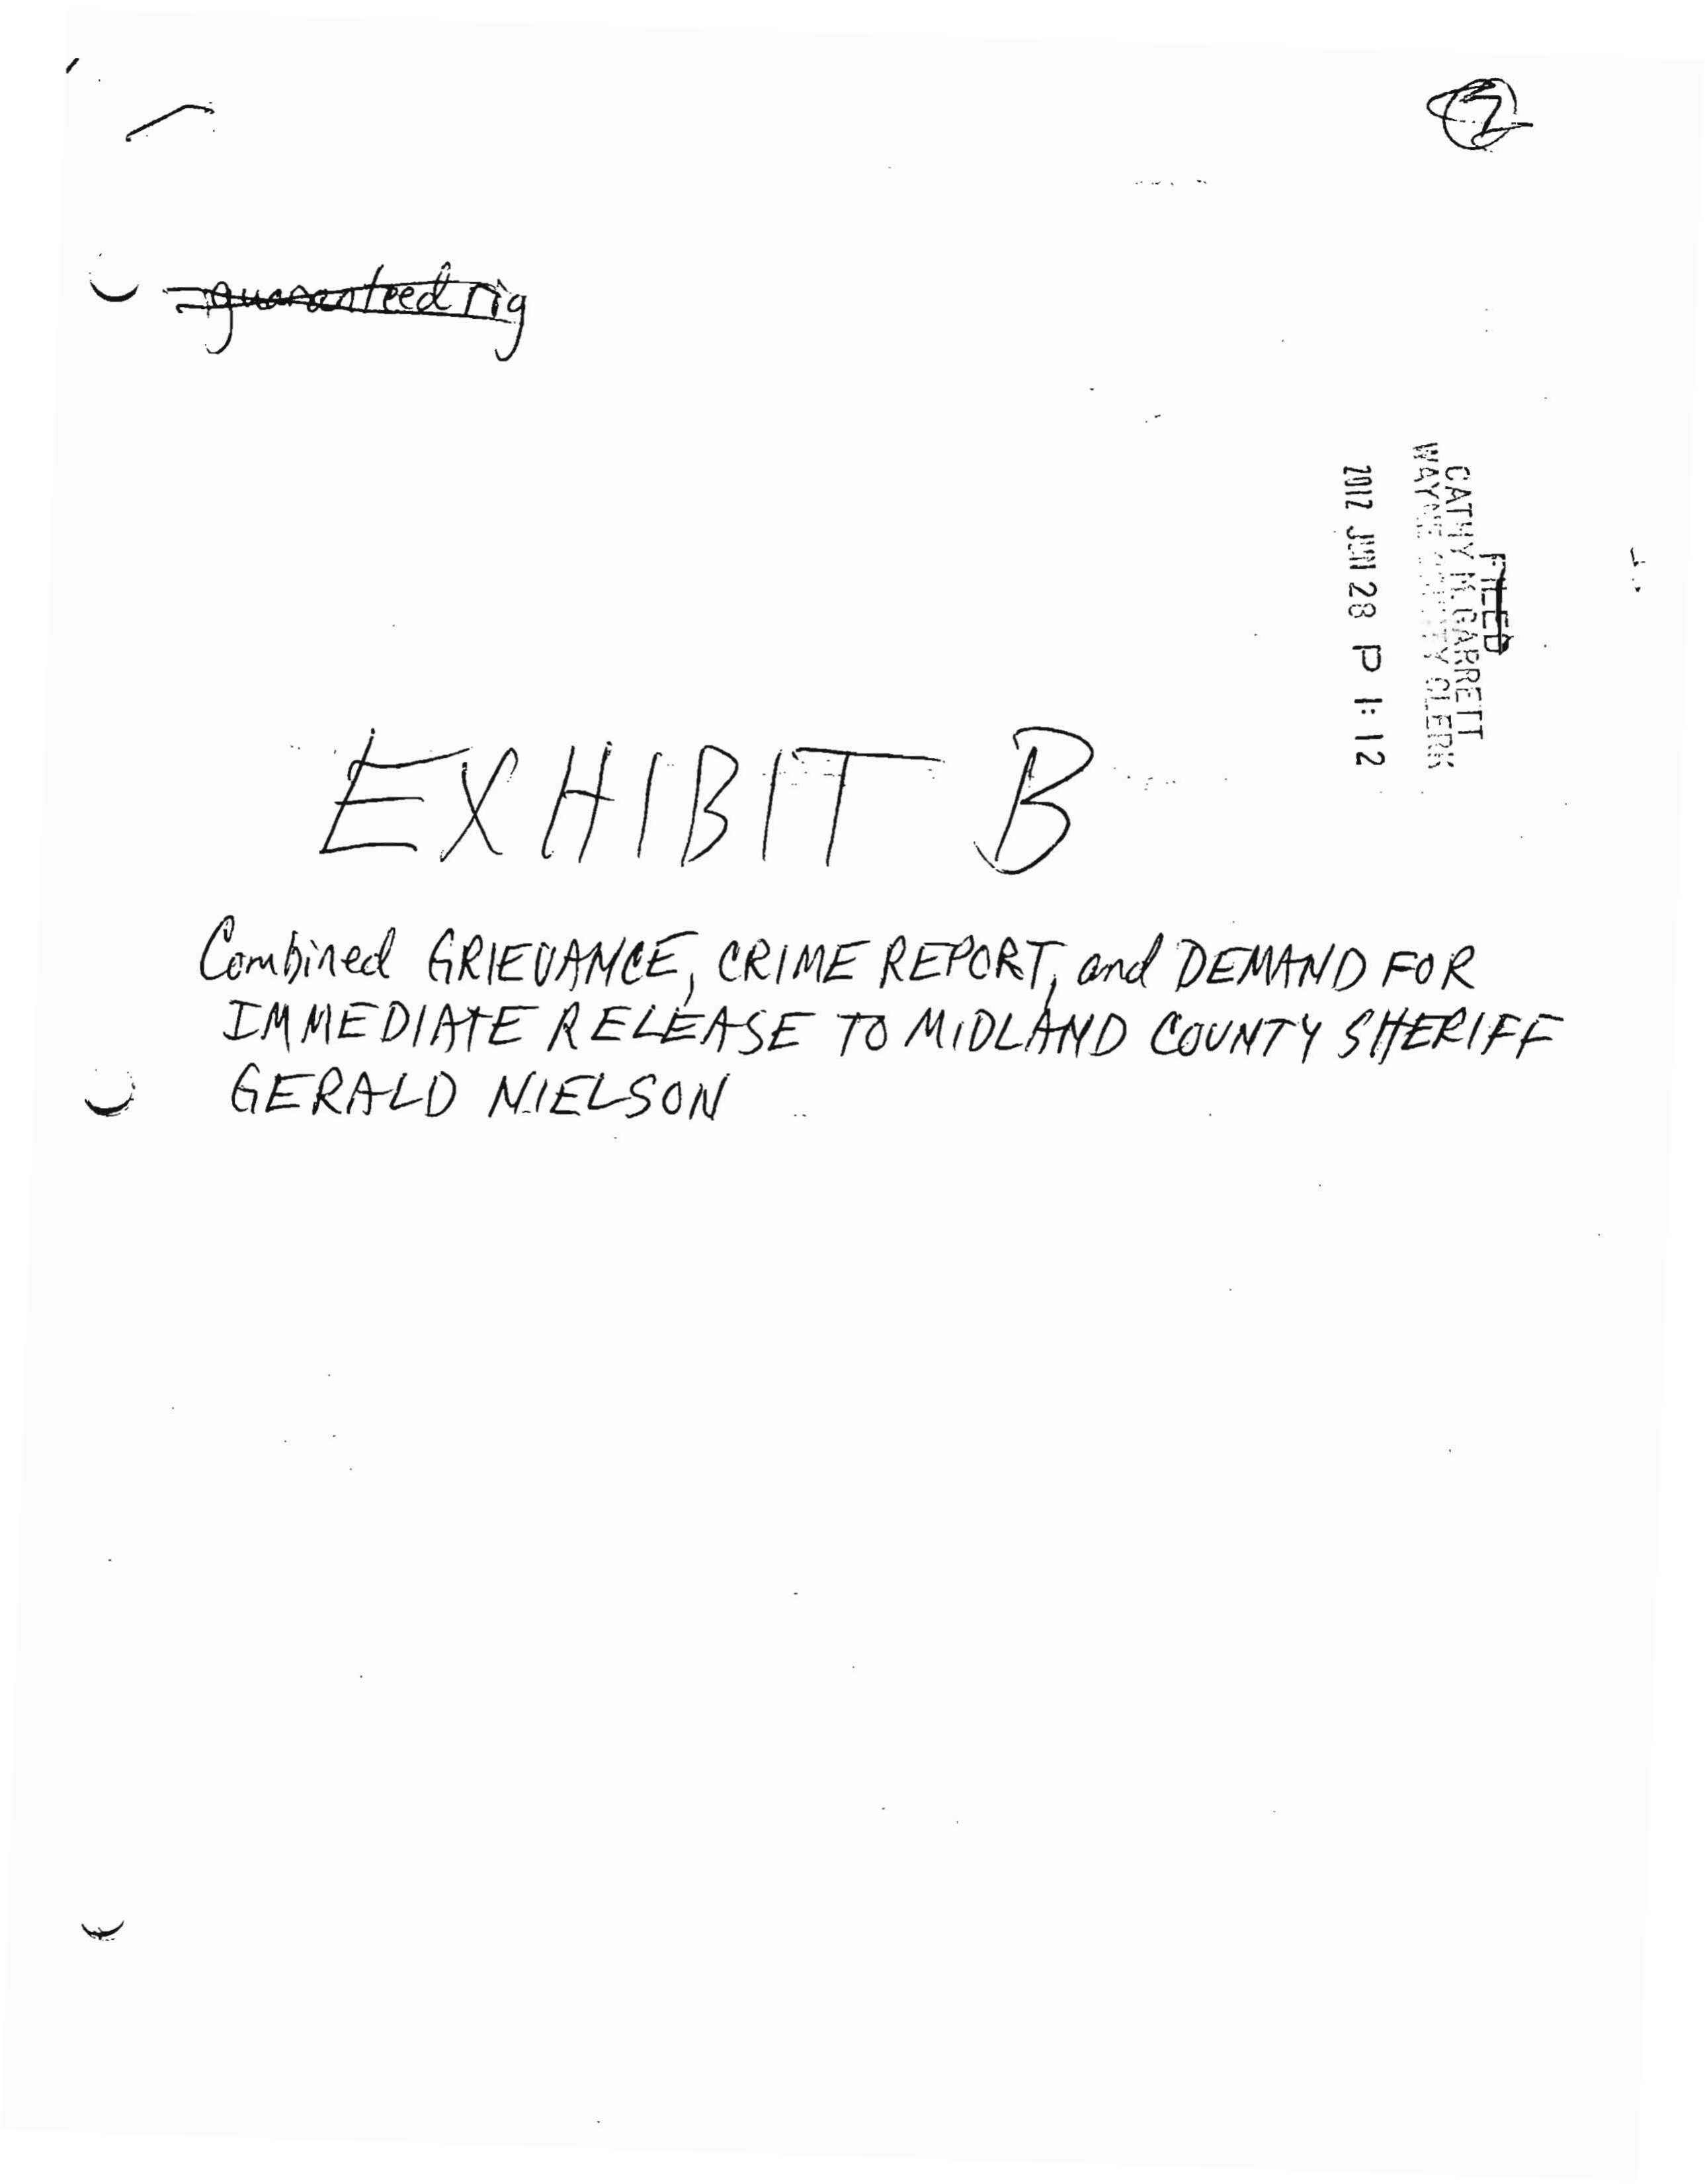 guaranteed rig
FILED
CATHY M. GARRETT
WAYNE COUNTY CLERK
2012 JUN 28 P 1:12
EXHIBIT B
Combined GRIEVANCE, CRIME REPORT, and DEMAND FOR
IMMEDIATE RELEASE TO MIDLAND COUNTY SHERIFF
GERALD NIELSON